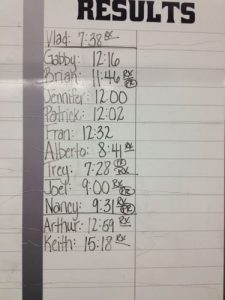 RESULTS
Vlad: 7:38 RX
Gabby: 12:16
Brian: 11:46 RX PR
Jennifer: 12:00
Patrick: 12:02
Fran: 12:32
Alberto: 8:41 RX
Trey: 7:28 PR RX
Joel: 9:00 RX PR
Nancy: 9:31 RX PR
Arthur: 12:59 RX
Keith: 15:18 RX